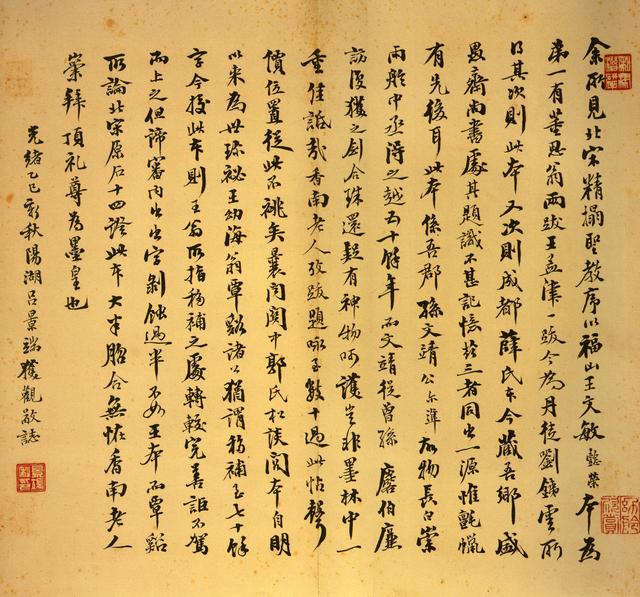 余所見北宋精搨聖教序以福山王文敏懿榮本為
第一有董思翁兩跋王孟津一跋今為丹徒劉鐵雲所
得其次則此本又次則成都薛氏本今藏吾鄉盛
愚齋尚書處其題識不甚記憶茲三者同出一源惟氈蠟
有先後耳此本係吾郡孫文靖公尔準故物長白崇
雨舲中丞得之越五十餘年而文靖從曾孫廑伯廉
訪復獲之劍合珠還疑有神物呵護豈非墨林中一
重佳話哉香南老人攷跋題咏至數十過此帖聲
價位置從此不祧矣曩閱關中郭氏松談閣本自明
以来為世珍祕王幼海翁覃谿諸公猶謂移補至七十餘
言今挍此本則王翁所指移補之處轉較完善詎不駕
而上之但諦審内出出字剝蝕過半不如王本而覃谿
所論北宋原石十四證此本大半脗合無怪香南老人
崇拜頂礼尊為墨皇也
光緒乙巳新秋陽湖呂景端獲觀敬誌